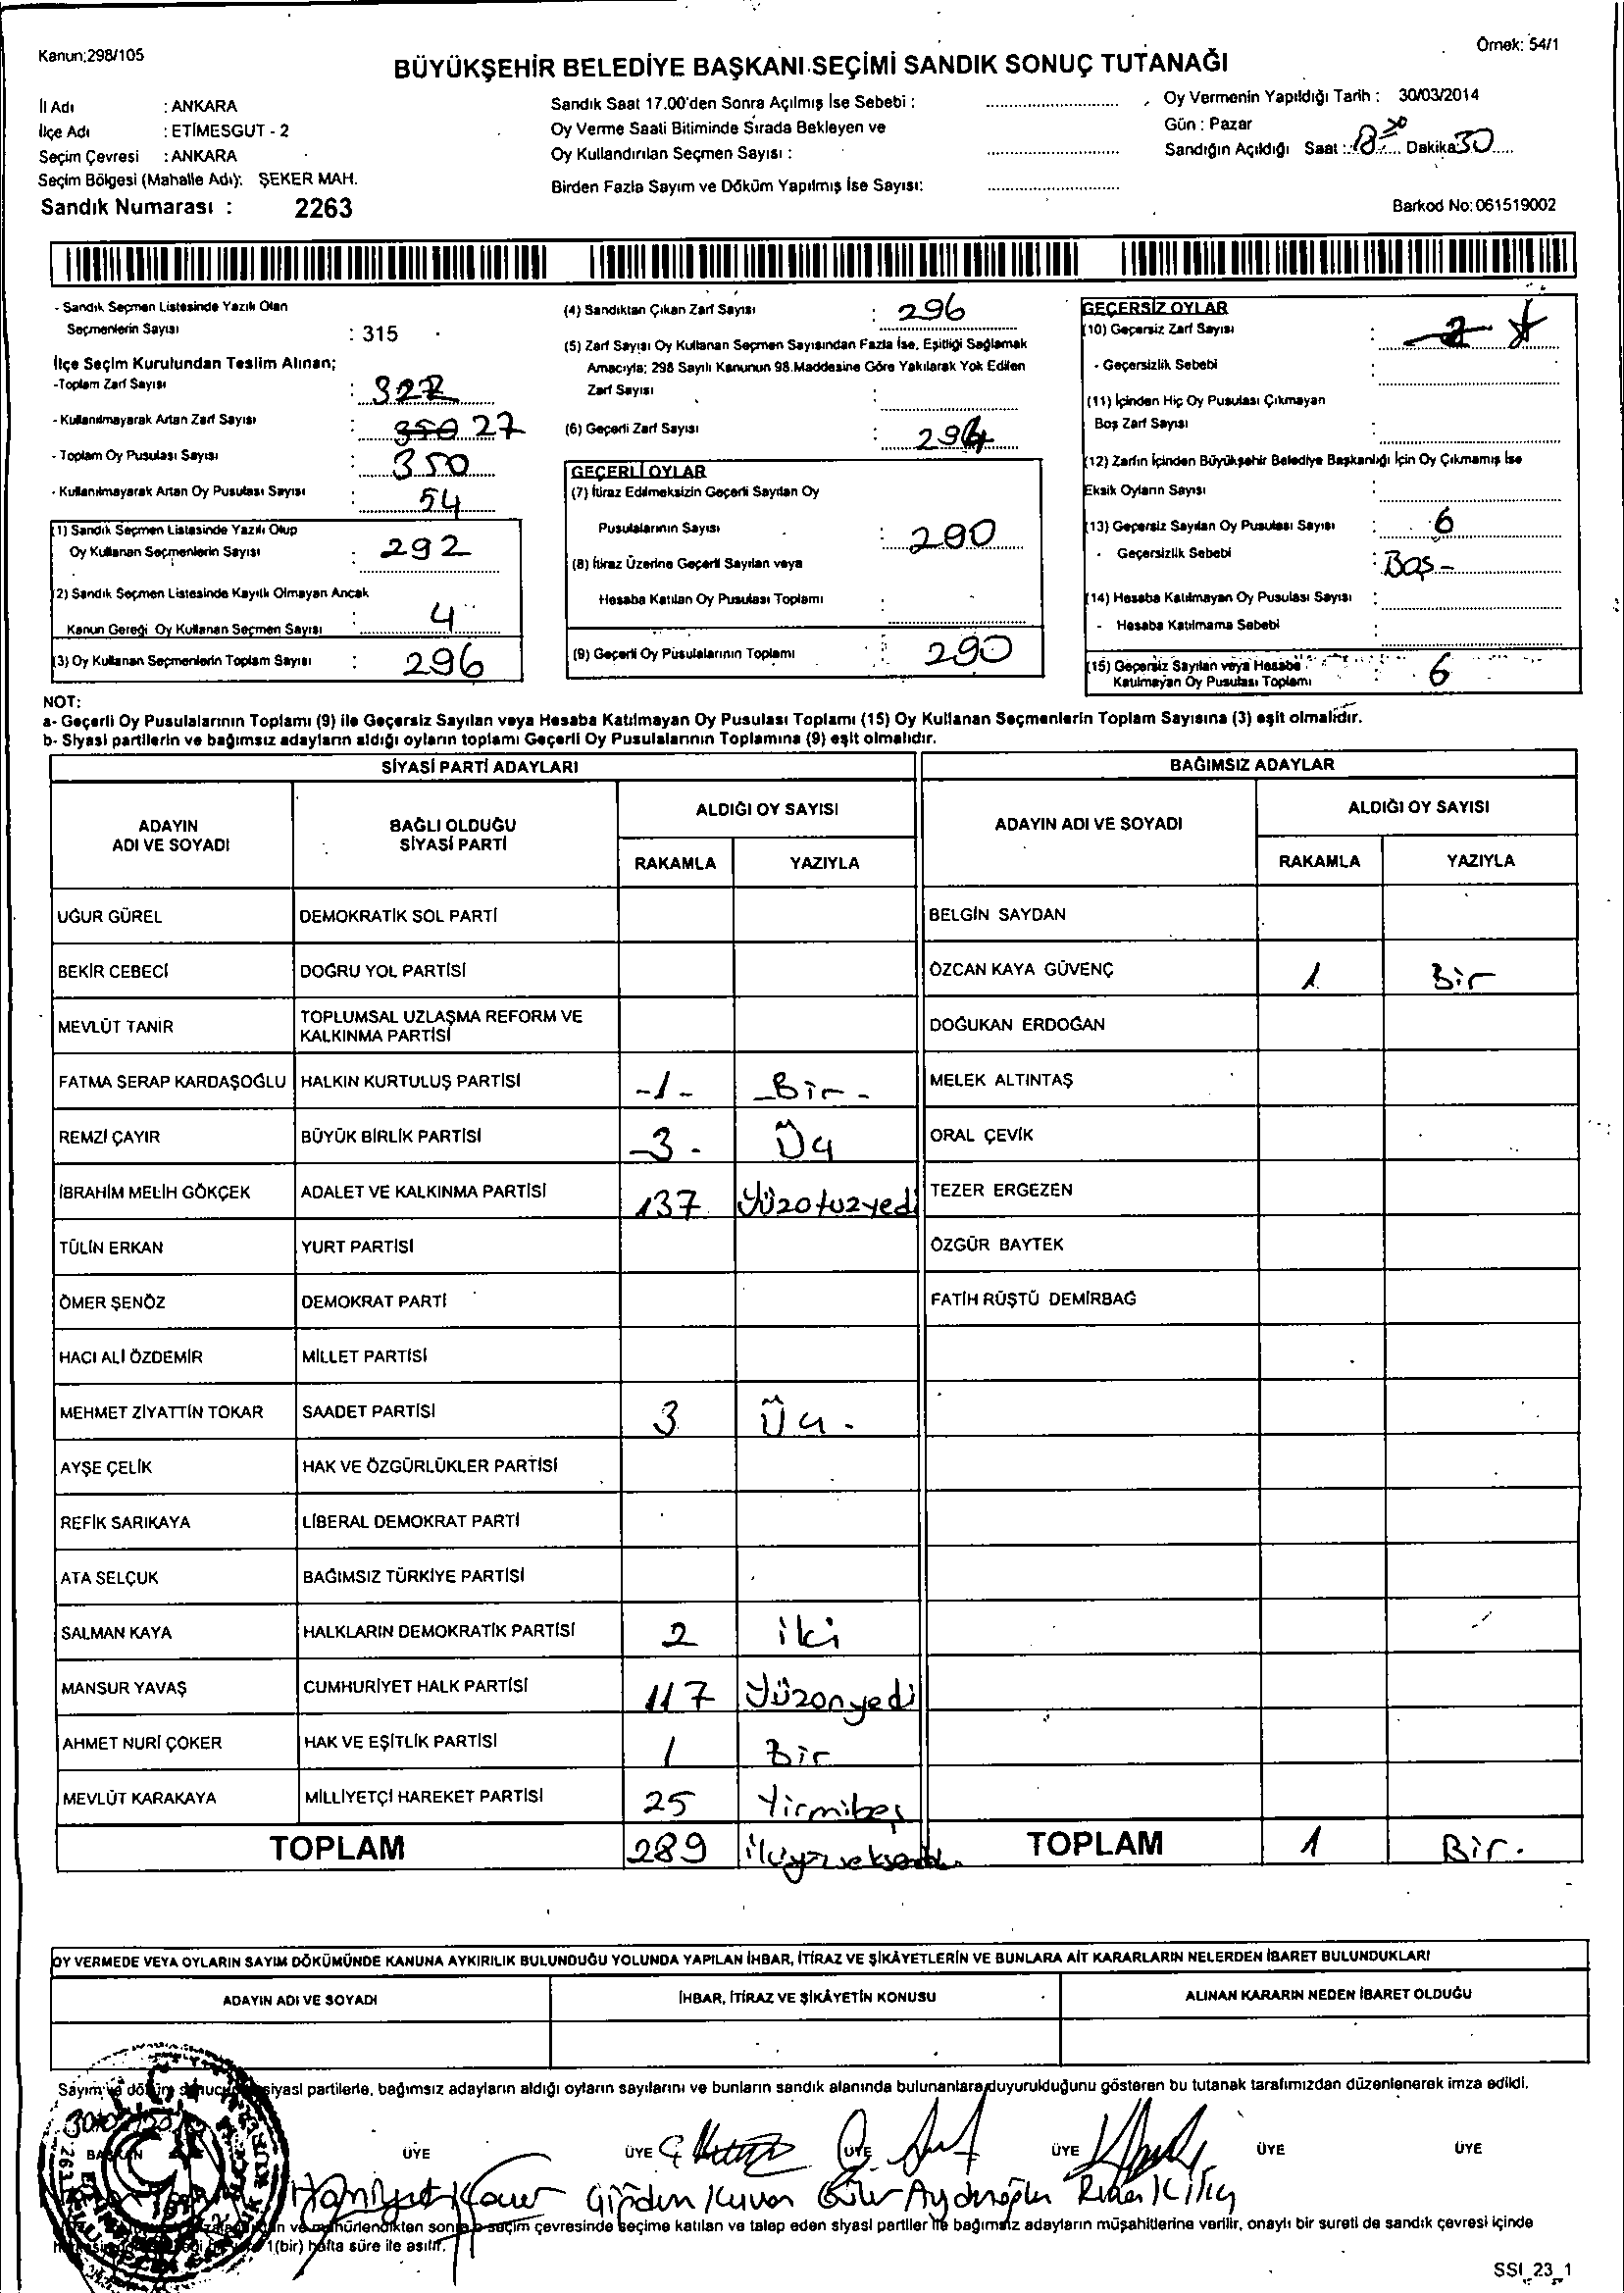 Kanun:298/105
Örnek: 54/1
BÜYÜKŞEHİR BELEDİYE BAŞKANI SEÇİMİ SANDIK SONUÇ TUTANAĞI
İl Adı : ANKARA
İlçe Adı : ETİMESGUT - 2
Seçim Çevresi : ANKARA
Seçim Bölgesi (Mahalle Adı): ŞEKER MAH.
Sandık Numarası : 2263
Sandık Saat 17.00'den Sonra Açılmış İse Sebebi :
Oy Verme Saati Bitiminde Sırada Bekleyen ve
Oy Kullandırılan Seçmen Sayısı :
Birden Fazla Sayım ve Döküm Yapılmış İse Sayısı:
Oy Vermenin Yapıldığı Tarih : 30/03/2014
Gün : Pazar
Sandığın Açıldığı Saat : 18 Dakika 30
Barkod No: 061519002
- Sandık Seçmen Listesinde Yazılı Olan
Seçmenlerin Sayısı : 315
İlçe Seçim Kurulundan Teslim Alınan;
-Toplam Zarf Sayısı : 322
- Kullanılmayarak Artan Zarf Sayısı : 350 27
- Toplam Oy Pusulası Sayısı : 350
- Kullanılmayarak Artan Oy Pusulası Sayısı : 54
(1) Sandık Seçmen Listesinde Yazılı Olup
Oy Kullanan Seçmenlerin Sayısı : 292
(2) Sandık Seçmen Listesinde Kayıtlı Olmayan Ancak
Kanun Gereği Oy Kullanan Seçmen Sayısı : 4
(3) Oy Kullanan Seçmenlerin Toplam Sayısı : 296
(4) Sandıktan Çıkan Zarf Sayısı : 296
(5) Zarf Sayısı Oy Kullanan Seçmen Sayısından Fazla İse, Eşitliği Sağlamak
Amacıyla; 298 Sayılı Kanunun 98.Maddesine Göre Yakılarak Yok Edilen
Zarf Sayısı :
(6) Geçerli Zarf Sayısı :
GEÇERLİ OYLAR
(7) İtiraz Edilmeksizin Geçerli Sayılan Oy
Pusulalarının Sayısı : 290
(8) İtiraz Üzerine Geçerli Sayılan veya
Hesaba Katılan Oy Pusulası Toplamı :
(9) Geçerli Oy Pusulalarının Toplamı : 290
GEÇERSİZ OYLAR
(10) Geçersiz Zarf Sayısı :
- Geçersizlik Sebebi :
(11) İçinden Hiç Oy Pusulası Çıkmayan
Boş Zarf Sayısı :
(12) Zarfın İçinden Büyükşehir Belediye Başkanlığı İçin Oy Çıkmamış İse
Eksik Oyların Sayısı :
(13) Geçersiz Sayılan Oy Pusulası Sayısı : 6
- Geçersizlik Sebebi : Boş -
(14) Hesaba Katılmayan Oy Pusulası Sayısı :
- Hesaba Katılmama Sebebi :
(15) Geçersiz Sayılan veya Hesaba
Katılmayan Oy Pusulası Toplamı : 6
NOT:
a- Geçerli Oy Pusulalarının Toplamı (9) ile Geçersiz Sayılan veya Hesaba Katılmayan Oy Pusulası Toplamı (15) Oy Kullanan Seçmenlerin Toplam Sayısına (3) eşit olmalıdır.
b- Siyasi partilerin ve bağımsız adayların aldığı oyların toplamı Geçerli Oy Pusulalarının Toplamına (9) eşit olmalıdır.
SİYASİ PARTİ ADAYLARI BAĞIMSIZ ADAYLAR
ADAYIN ADI VE SOYADI BAĞLI OLDUĞU SİYASİ PARTİ ALDIĞI OY SAYISI ADAYIN ADI VE SOYADI ALDIĞI OY SAYISI
RAKAMLA YAZIYLA RAKAMLA YAZIYLA
UĞUR GÜREL DEMOKRATİK SOL PARTİ BELGİN SAYDAN
BEKİR CEBECİ DOĞRU YOL PARTİSİ ÖZCAN KAYA GÜVENÇ 1 Bir
MEVLÜT TANIR TOPLUMSAL UZLAŞMA REFORM VE KALKINMA PARTİSİ DOĞUKAN ERDOĞAN
FATMA SERAP KARDAŞOĞLU HALKIN KURTULUŞ PARTİSİ -1- -Bir- MELEK ALTINTAŞ
REMZİ ÇAYIR BÜYÜK BİRLİK PARTİSİ -3- Üç ORAL ÇEVİK
İBRAHİM MELİH GÖKÇEK ADALET VE KALKINMA PARTİSİ 137 Yüzotuzyedi TEZER ERGEZEN
TÜLİN ERKAN YURT PARTİSİ ÖZGÜR BAYTEK
ÖMER ŞENÖZ DEMOKRAT PARTİ FATİH RÜŞTÜ DEMİRBAĞ
HACI ALİ ÖZDEMİR MİLLET PARTİSİ
MEHMET ZİYATTİN TOKAR SAADET PARTİSİ 3 Üç.
AYŞE ÇELİK HAK VE ÖZGÜRLÜKLER PARTİSİ
REFİK SARIKAYA LİBERAL DEMOKRAT PARTİ
ATA SELÇUK BAĞIMSIZ TÜRKİYE PARTİSİ
SALMAN KAYA HALKLARIN DEMOKRATİK PARTİSİ 2 iki
MANSUR YAVAŞ CUMHURİYET HALK PARTİSİ 117 Yüzonyedi
AHMET NURİ ÇOKER HAK VE EŞİTLİK PARTİSİ 1 Bir
MEVLÜT KARAKAYA MİLLİYETÇİ HAREKET PARTİSİ 25 Yirmibeş
TOPLAM 289 TOPLAM 1 Bir.
OY VERMEDE VEYA OYLARIN SAYIM DÖKÜMÜNDE KANUNA AYKIRILIK BULUNDUĞU YOLUNDA YAPILAN İHBAR, İTİRAZ VE ŞİKÂYETLERİN VE BUNLARA AİT KARARLARIN NELERDEN İBARET BULUNDUKLARI
ADAYIN ADI VE SOYADI İHBAR, İTİRAZ VE ŞİKÂYETİN KONUSU ALINAN KARARIN NEDEN İBARET OLDUĞU
Sayım ve döküm siyasi partilerle, bağımsız adayların aldığı oyların sayılarını ve bunların sandık alanında bulunanlara duyurulduğunu gösteren bu tutanak tarafımızdan düzenlenerek imza edildi.
BAŞKAN ÜYE ÜYE ÜYE ÜYE ÜYE ÜYE
ve mühürlendikten sonra seçim çevresinde seçime katılan ve talep eden siyasi partiler ile bağımsız adayların müşahitlerine verilir, onaylı bir sureti de sandık çevresi içinde
1(bir) hafta süre ile asılır.
SSI_23_1